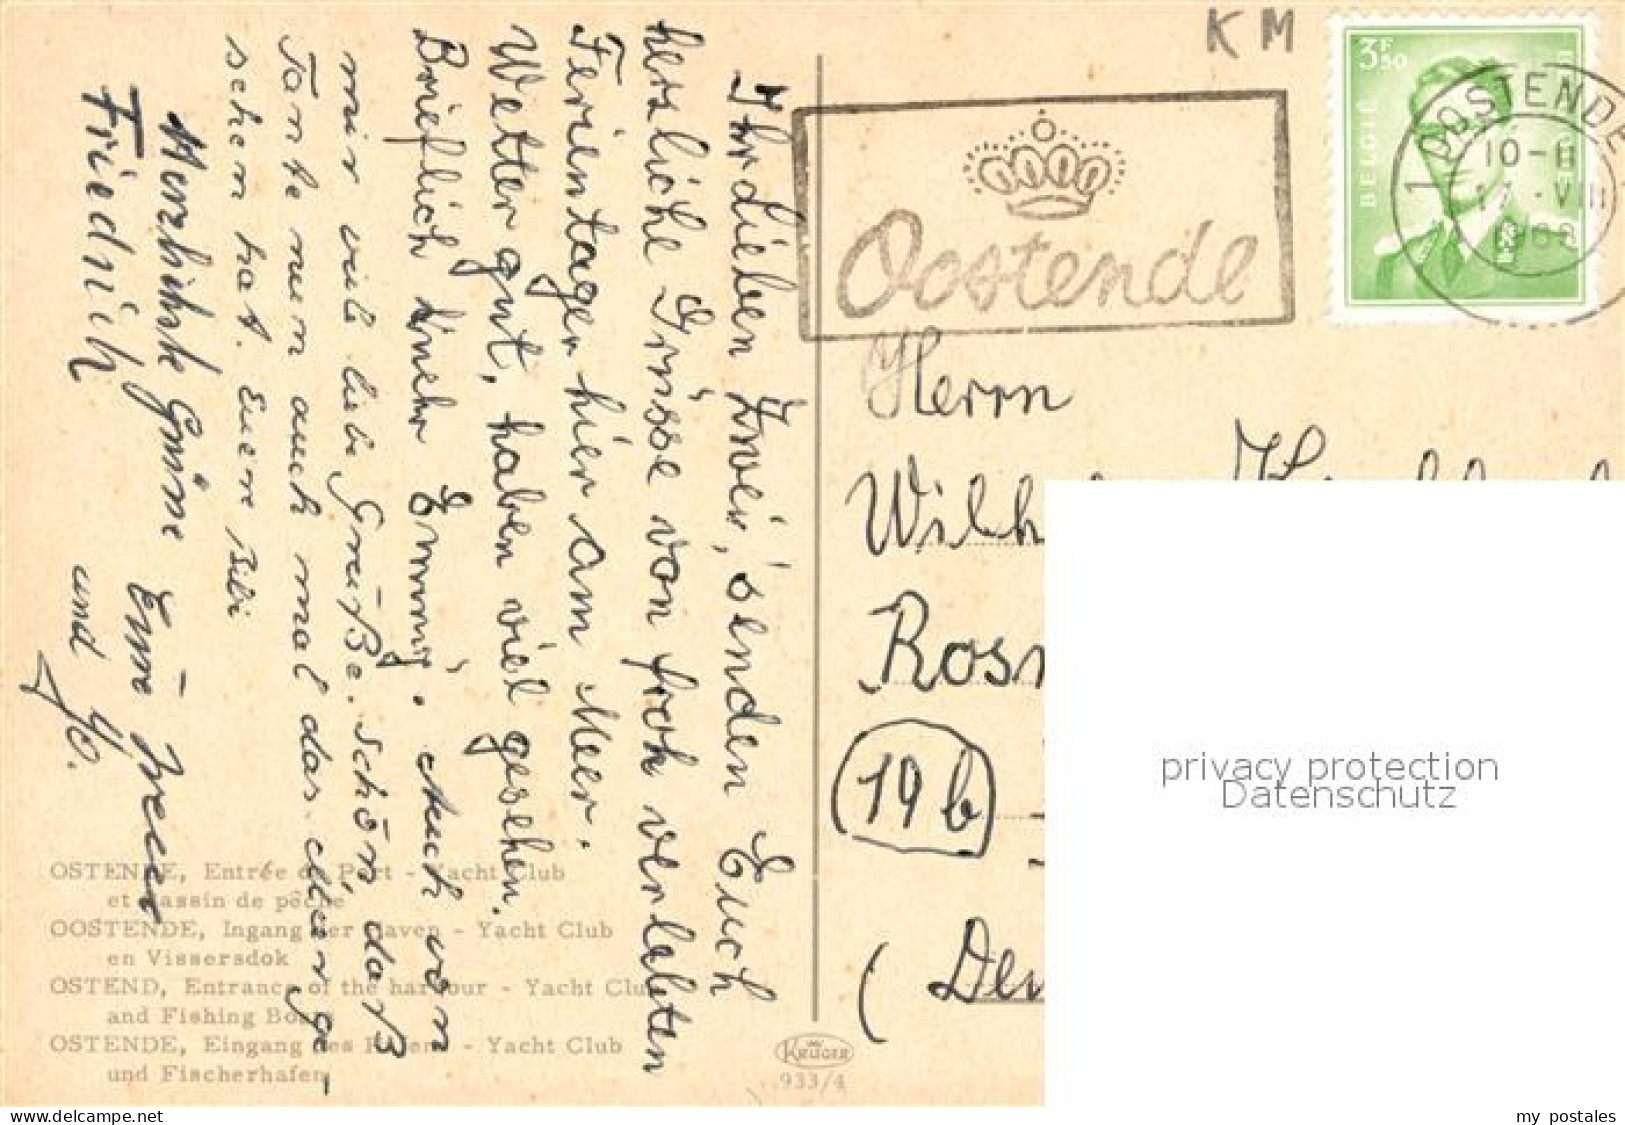 Ihr Lieben Zwei, senden Euch
herzliche Grüsse von froh verlebten
Ferientagen hier am Meer.
Wetter gut, haben viel gesehen.
Brieflich mehr Emmy. Auch von
mir viele liebe Grüße. Schön, daß
Tante nun auch mal das
schem hat. Euere
Herzlichste Grüsse Eure
Friedrich und Jo.
OSTENDE, Entrée du Port - Yacht Club
et bassin de pêche
OOSTENDE, Ingang der Haven - Yacht Club
en Vissersdok
OSTEND, Entrance of the harbour - Yacht Club
and Fishing Boats
OSTENDE, Eingang des Hafens - Yacht Club
und Fischerhafen
KRÜGER
933/4
KM
3F50
BELGIË
Oostende
1 OOSTENDE
10-11
17 VIII
Herrn
Wilh
Ros
19b
(De
privacy protection
Datenschutz
my postales
www.delcampe.net